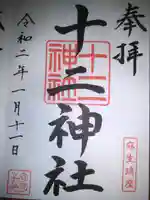 奉拝
十二神社
十二
神社
令和二年一月十一日